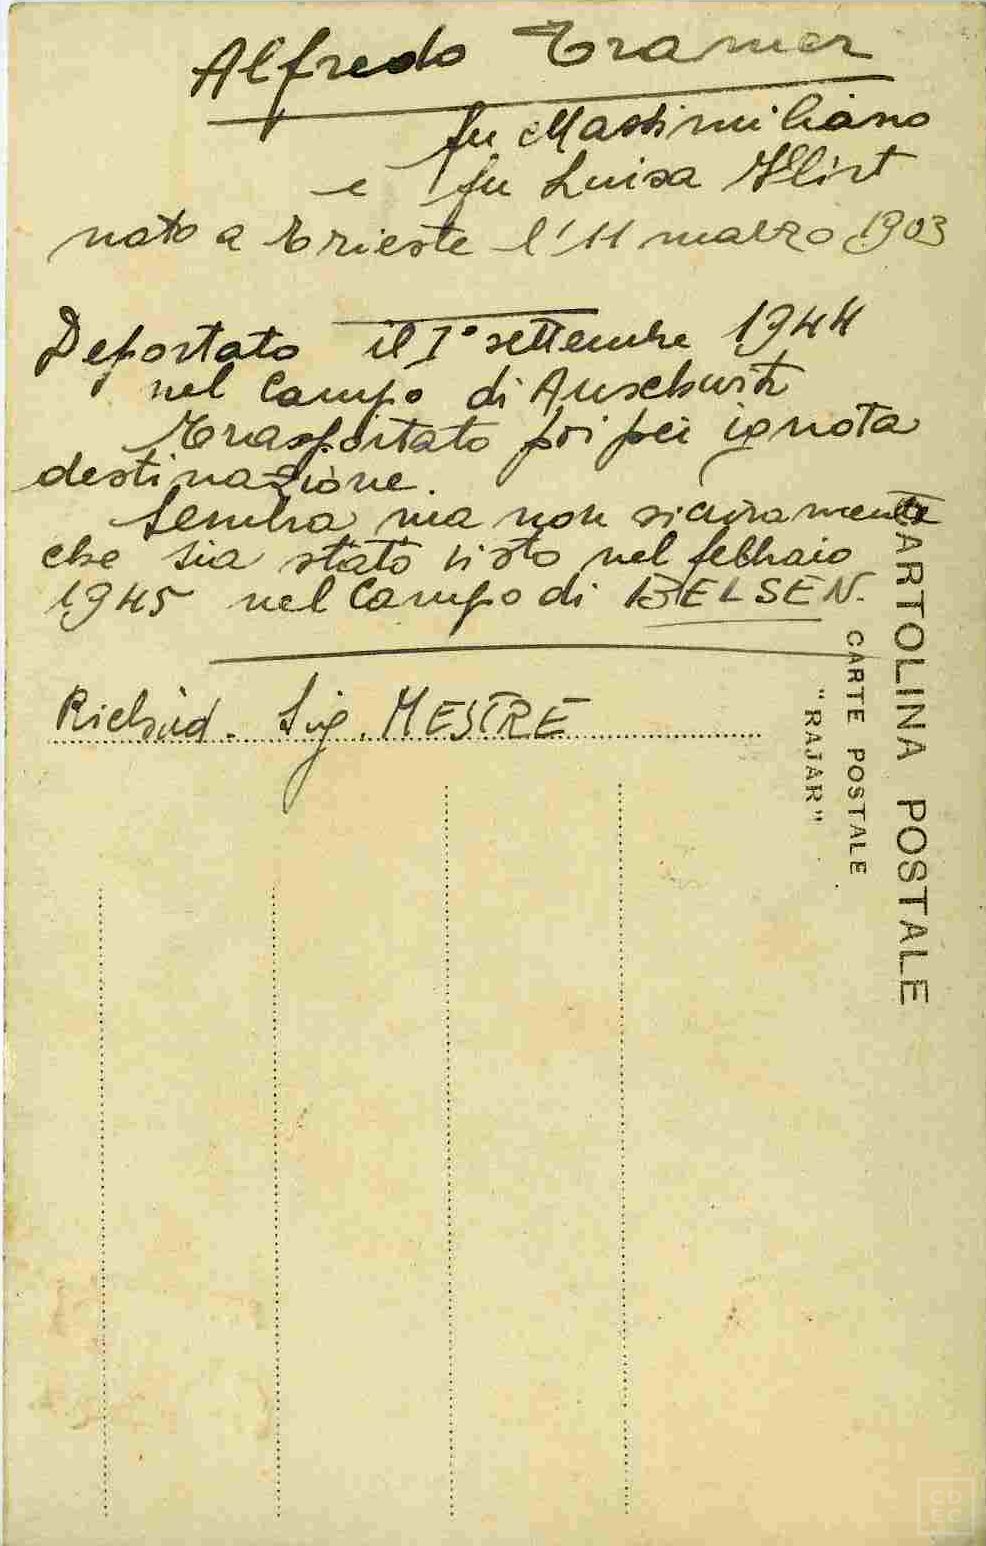 Alfredo Tramer
fu Massimiliano
e fu Luisa
nato a Trieste l'11 marzo 1903
Deportato il I° settembre 1944
nel Campo di Auschwitz
Trasportato poi per ignota
destinazione.
Sembra ma non sicuramente
che sia stato visto nel febbraio
1945 nel Campo di BELSEN.
Sig. MESTRE
CARTOLINA POSTALE
CARTE POSTALE
"RAJAR"
CD
EC